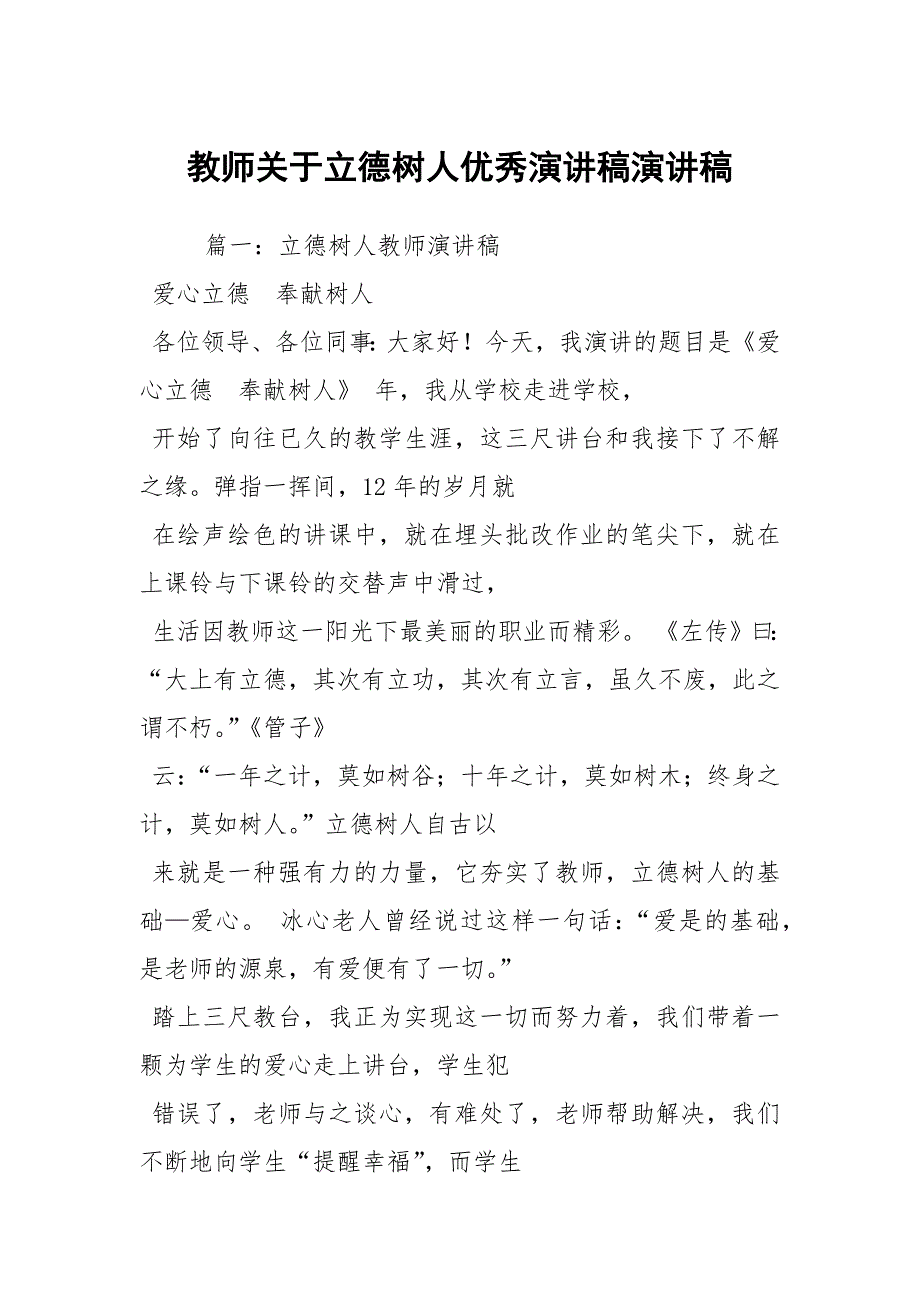 教师关于立德树人优秀演讲稿演讲稿
篇一：立德树人教师演讲稿
爱心立德　奉献树人
各位领导、各位同事：大家好！今天，我演讲的题目是《爱
心立德　奉献树人》 年，我从学校走进学校，
开始了向往已久的教学生涯，这三尺讲台和我接下了不解
之缘。弹指一挥间，12 年的岁月就
在绘声绘色的讲课中，就在埋头批改作业的笔尖下，就在
上课铃与下课铃的交替声中滑过，
生活因教师这一阳光下最美丽的职业而精彩。 《左传》曰：
“大上有立德，其次有立功，其次有立言，虽久不废，此之
谓不朽。”《管子》
云：“一年之计，莫如树谷；十年之计，莫如树木；终身之
计，莫如树人。”立德树人自古以
来就是一种强有力的力量，它夯实了教师，立德树人的基
础—爱心。 冰心老人曾经说过这样一句话：“爱是的基础，
是老师的源泉，有爱便有了一切。”
踏上三尺教台，我正为实现这一切而努力着，我们带着一
颗为学生的爱心走上讲台，学生犯
错误了，老师与之谈心，有难处了，老师帮助解决，我们
不断地向学生“提醒幸福”，而学生